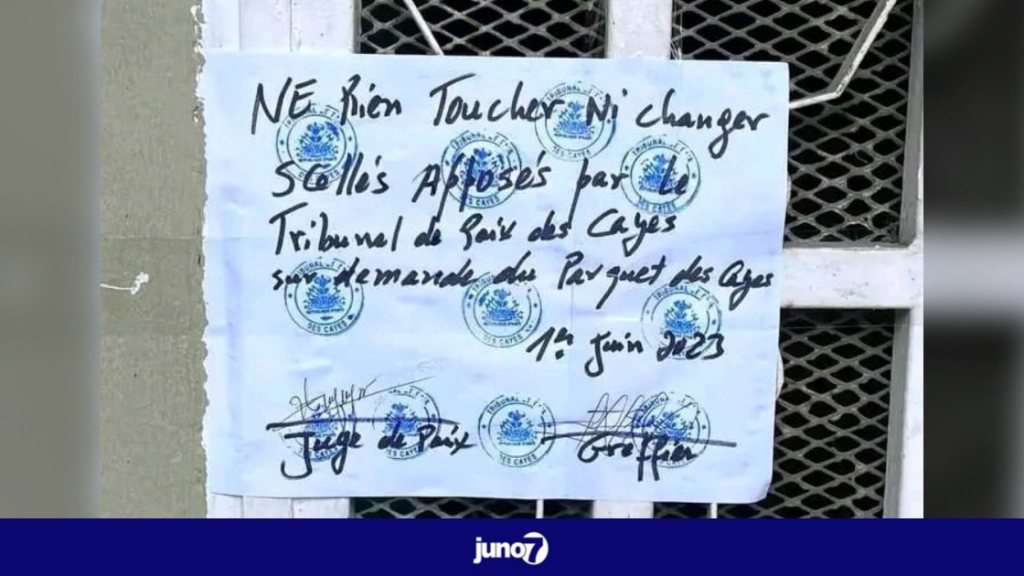 NE Rien Toucher Ni changer
Scellés Apposés par le
Tribunal de Paix des Cayes
sur demande du Parquet des Cayes
1er Juin 2023
Juge de Paix
Greffier
TRIBUNAL DE
DES CAYES
juno7